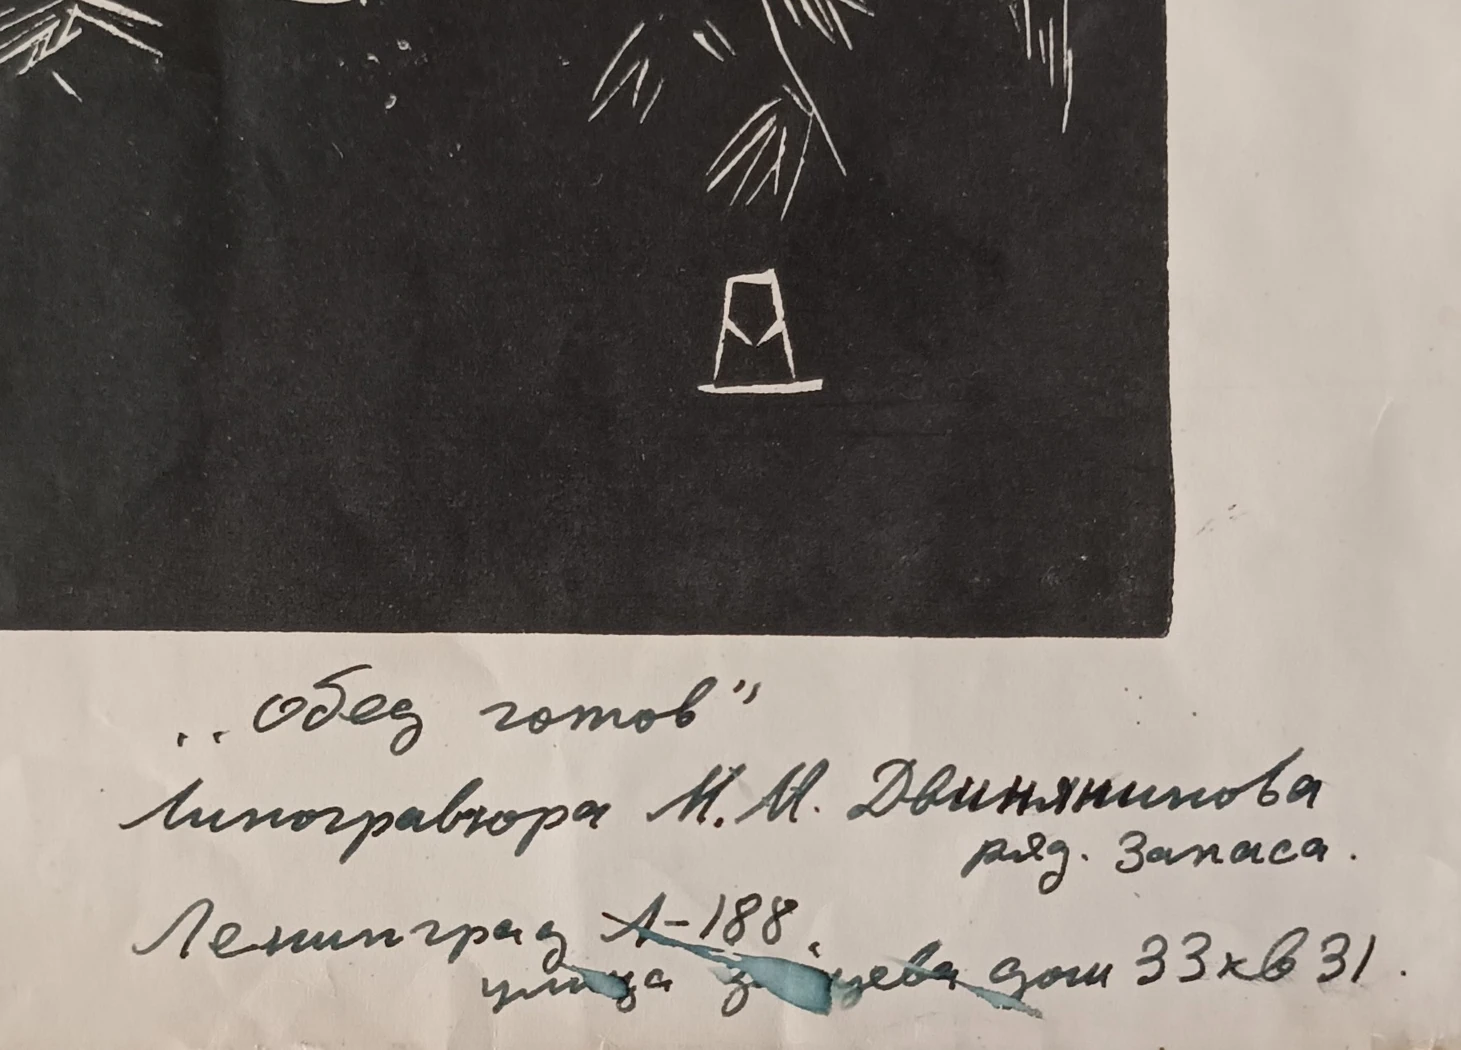 „Обед готов”
Линогравюра М.М. Двинянинова
ряд. запаса.
Ленинград Л-188
улица Зайцева дом 33 кв 31.